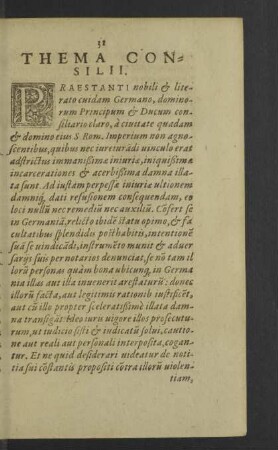 31
THEMA CON-
SILII.
PRAESTANTI nobili & lite-
rato cuidam Germano, domino-
rum Principum & Ducum con-
siliario claro, à ciuitate quadam
& domino eius S. Rom. Imperium non agno-
scentibus, quibus nec iureiurādi uinculo erat
adstrictus immanissimæ iniuriæ, iniquissimæ
incarcerationes & acerbissima damna illa-
ta sunt. Ad iustam perpessæ iniuriæ ultionem
damniq́, dati refusionem consequendam, eo
loci nullū nec remediū nec auxiliū. Cōfert se
in Germaniā, relicto ibidē statu opimo, & fa
cultatibus splendidis posthabitis, intentionē
suā se uindicādi, instrumēto munit & aduer
sarijs suis per notarios denunciat, se nō tam il
lorū personas quàm bona ubicunq́, in Germa
nia illas aut illa inuenerit arestaturū: donec
illorū facta, aut legitimis rationib iustificēt,
aut cū illo propter sceleratissimè illata dam-
na transigāt: Ideo iuris uigore illos prosecutu-
rum, ut iudicio sisti & iudicatū solui, cautio-
ne aut reali aut personali interposita, cogan-
tur. Et ne quid desiderari uideatur de noti-
tia sui cōstantis propositi cōtra illorū uiolen-
tiam,